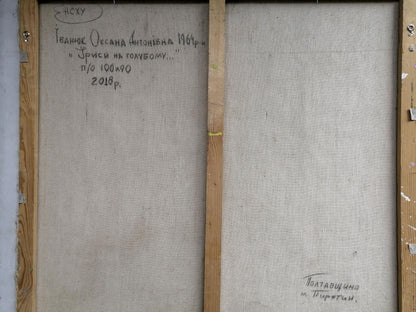 НСХУ
Геднюк Оксана Антонівна 1964р.н
"Іриси на голубому..."
п/о 100х90
2018р.
Полтавщина
м. Пирятин.